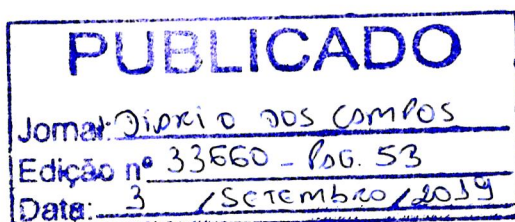 PUBLICADO
Jornal: DIÁRIO DOS CAMPOS
Edição nº 33660 - PÁG. 53
Data: 3 / SETEMBRO / 2019